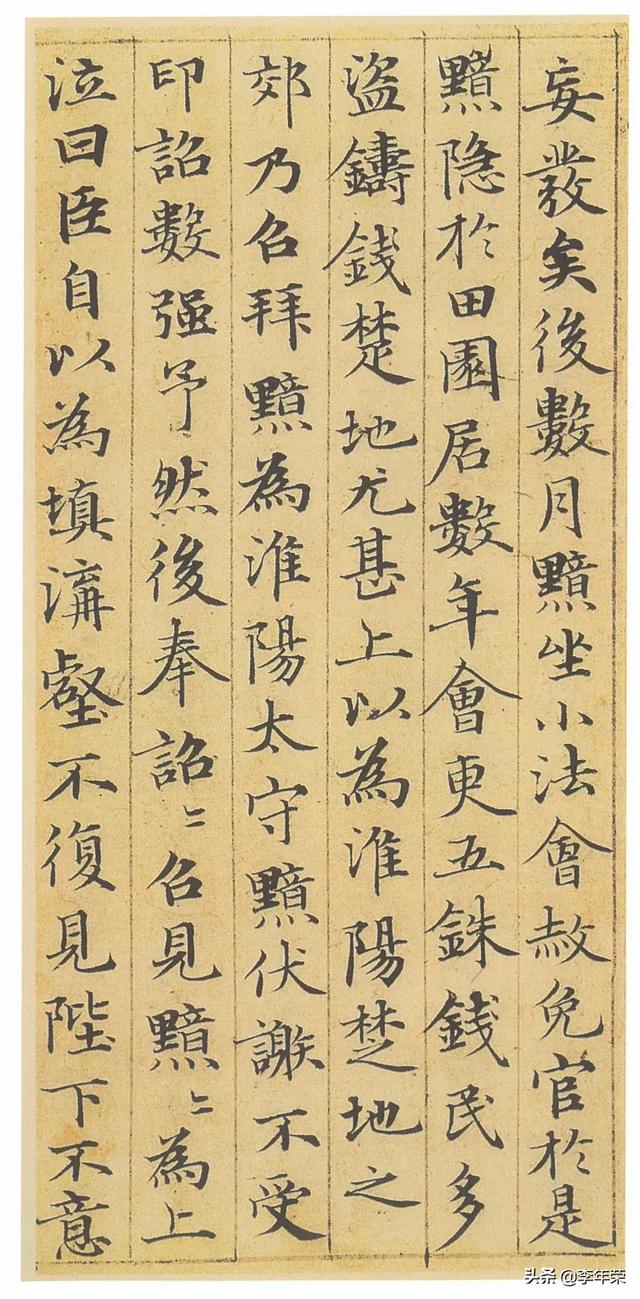 妄發矣後數月黯坐小法會赦免官於是
黯隱於田園居數年會更五銖錢民多
盜鑄錢楚地尤甚上以為淮陽楚地之
郊乃召拜黯為淮陽太守黯伏謝不受
印詔數强予然後奉詔〻召見黯〻為上
泣曰臣自以為填溝壑不復見陛下不意
头条 @李年荣